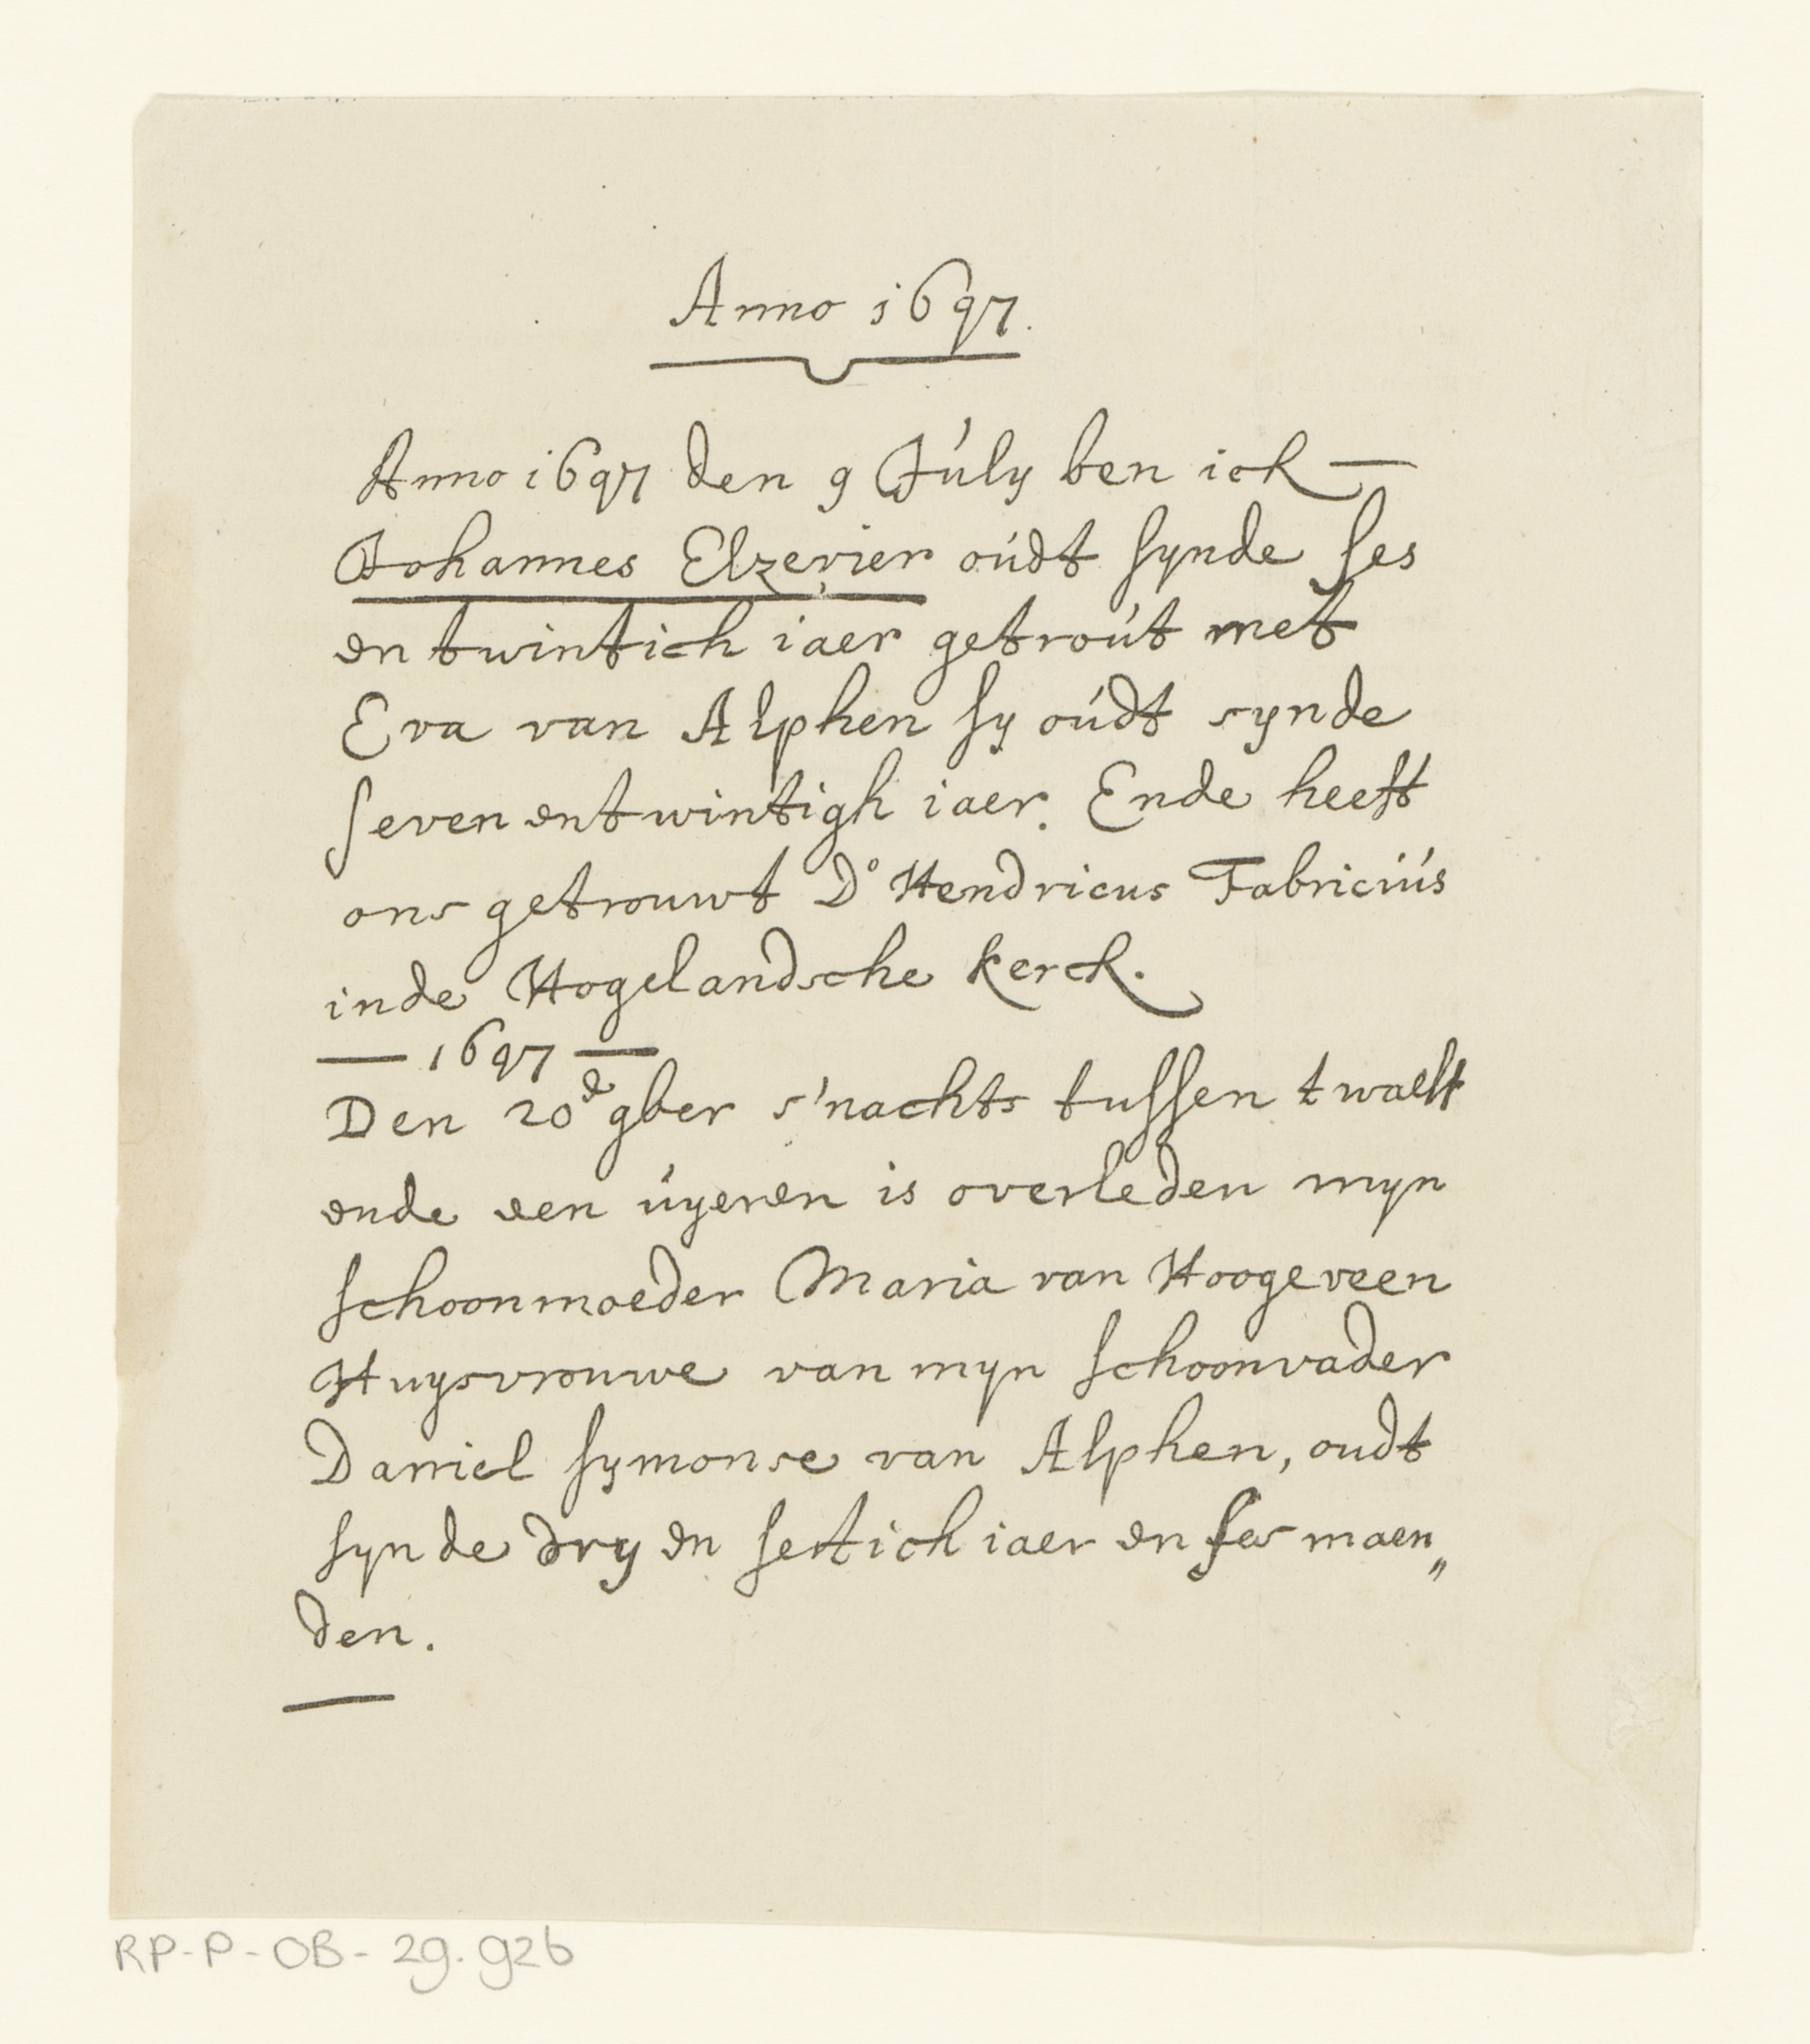 Anno 1697.
Anno 1697 den 9 Júly ben ick —
Johannes Elzevier oúdt synde ses
en twintich iaer getroút met
Eva van Alphen sy oúdt synde
seven entwintigh iaer. Ende heeft
ons getrouwt D° Hendricus Fabriciús
inde Hogelandsche kerck.
— 1697 —
Den 20ᵈ 9ber s'nachts tussen twaelf
ende een úyeren is overleden myn
schoonmoeder Maria van Hoogeveen
Huysvrouwe van myn schoonvader
Daniel symonse van Alphen, oudt
synde dry en sestich iaer en ses maen„
den.
RP-P-OB-29.926